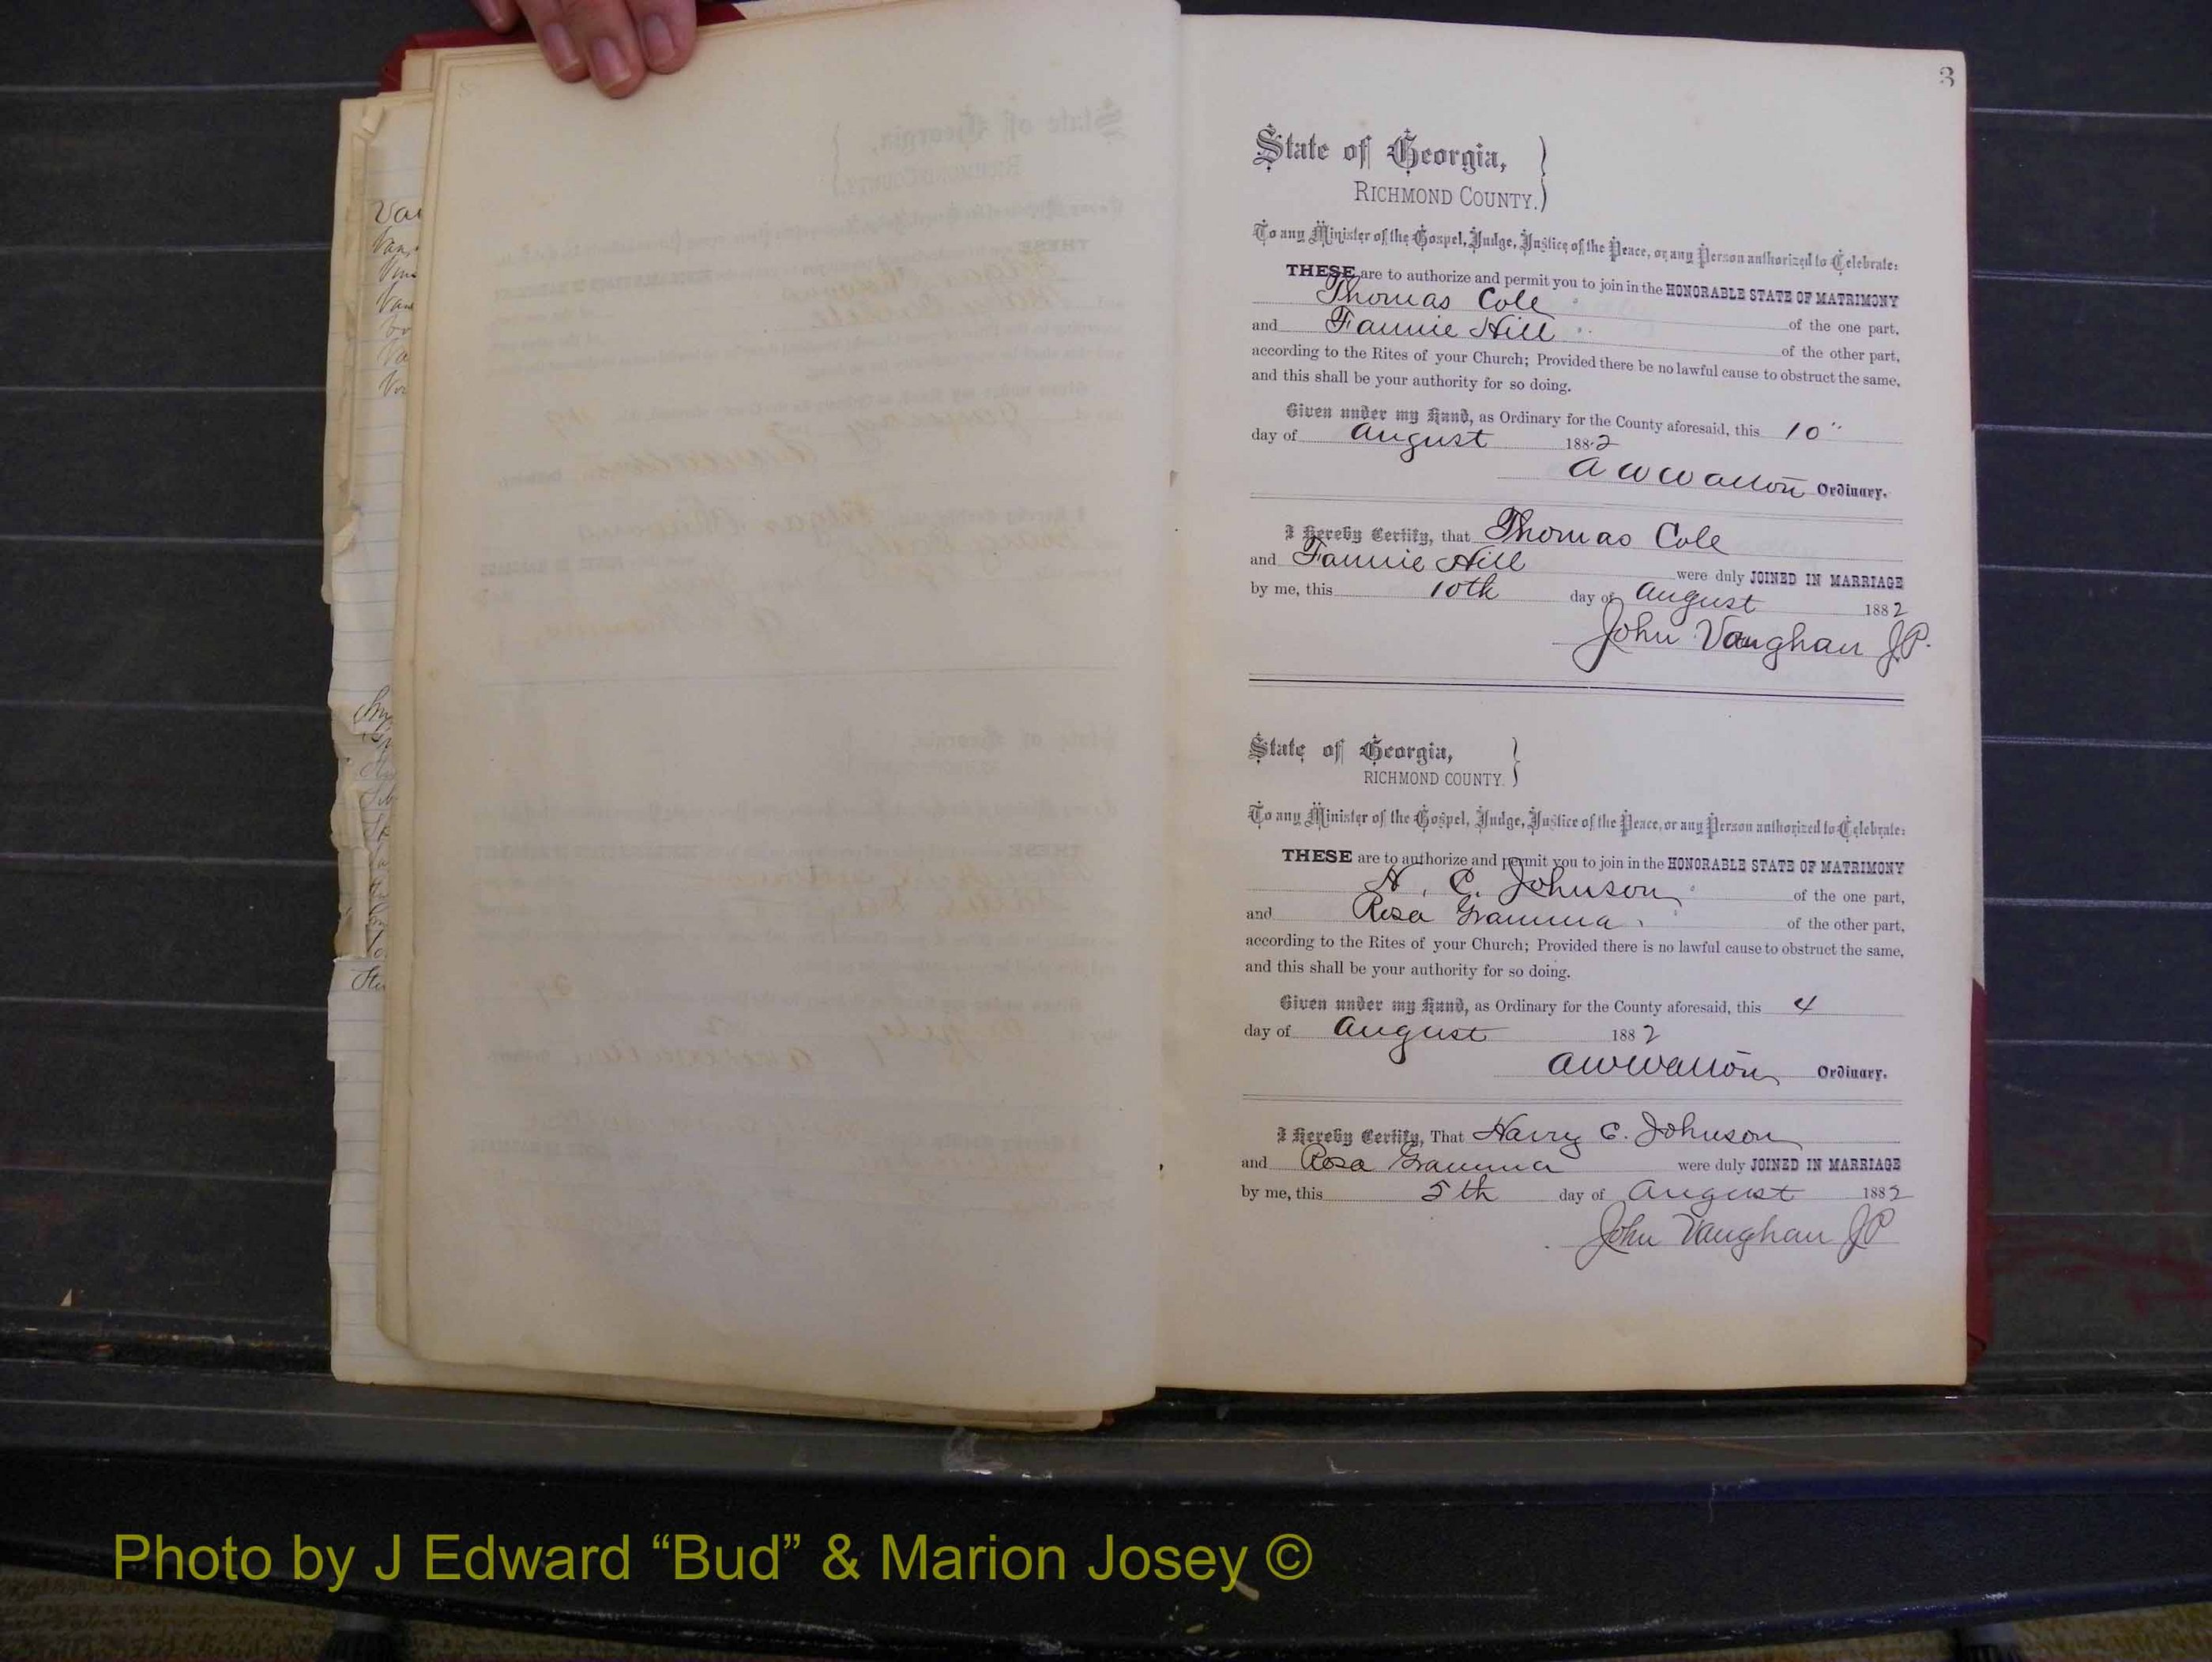 3
State of Georgia,
RICHMOND COUNTY.
To any Minister of the Gospel, Judge, Justice of the Peace, or any Person authorized to Celebrate:
THESE are to authorize and permit you to join in the HONORABLE STATE OF MATRIMONY
Thomas Cole of the one part,
and Fannie Hill of the other part,
according to the Rites of your Church; Provided there be no lawful cause to obstruct the same,
and this shall be your authority for so doing.
Given under my Hand, as Ordinary for the County aforesaid, this 10"
day of August 1882
A W Walton Ordinary.
I Hereby Certify, that Thomas Cole
and Fannie Hill were duly JOINED IN MARRIAGE
by me, this 10th day of August 1882
John Vaughan J.P.
State of Georgia,
RICHMOND COUNTY.
To any Minister of the Gospel, Judge, Justice of the Peace, or any Person authorized to Celebrate:
THESE are to authorize and permit you to join in the HONORABLE STATE OF MATRIMONY
H. C. Johnson of the one part,
and Rosa Gramma of the other part,
according to the Rites of your Church; Provided there is no lawful cause to obstruct the same,
and this shall be your authority for so doing.
Given under my Hand, as Ordinary for the County aforesaid, this 4
day of August 1882
A W Walton Ordinary.
I Hereby Certify, That Harry C. Johnson
and Rosa Gramma were duly JOINED IN MARRIAGE
by me, this 5th day of August 1882
John Vaughan JP
Photo by J Edward “Bud” & Marion Josey ©